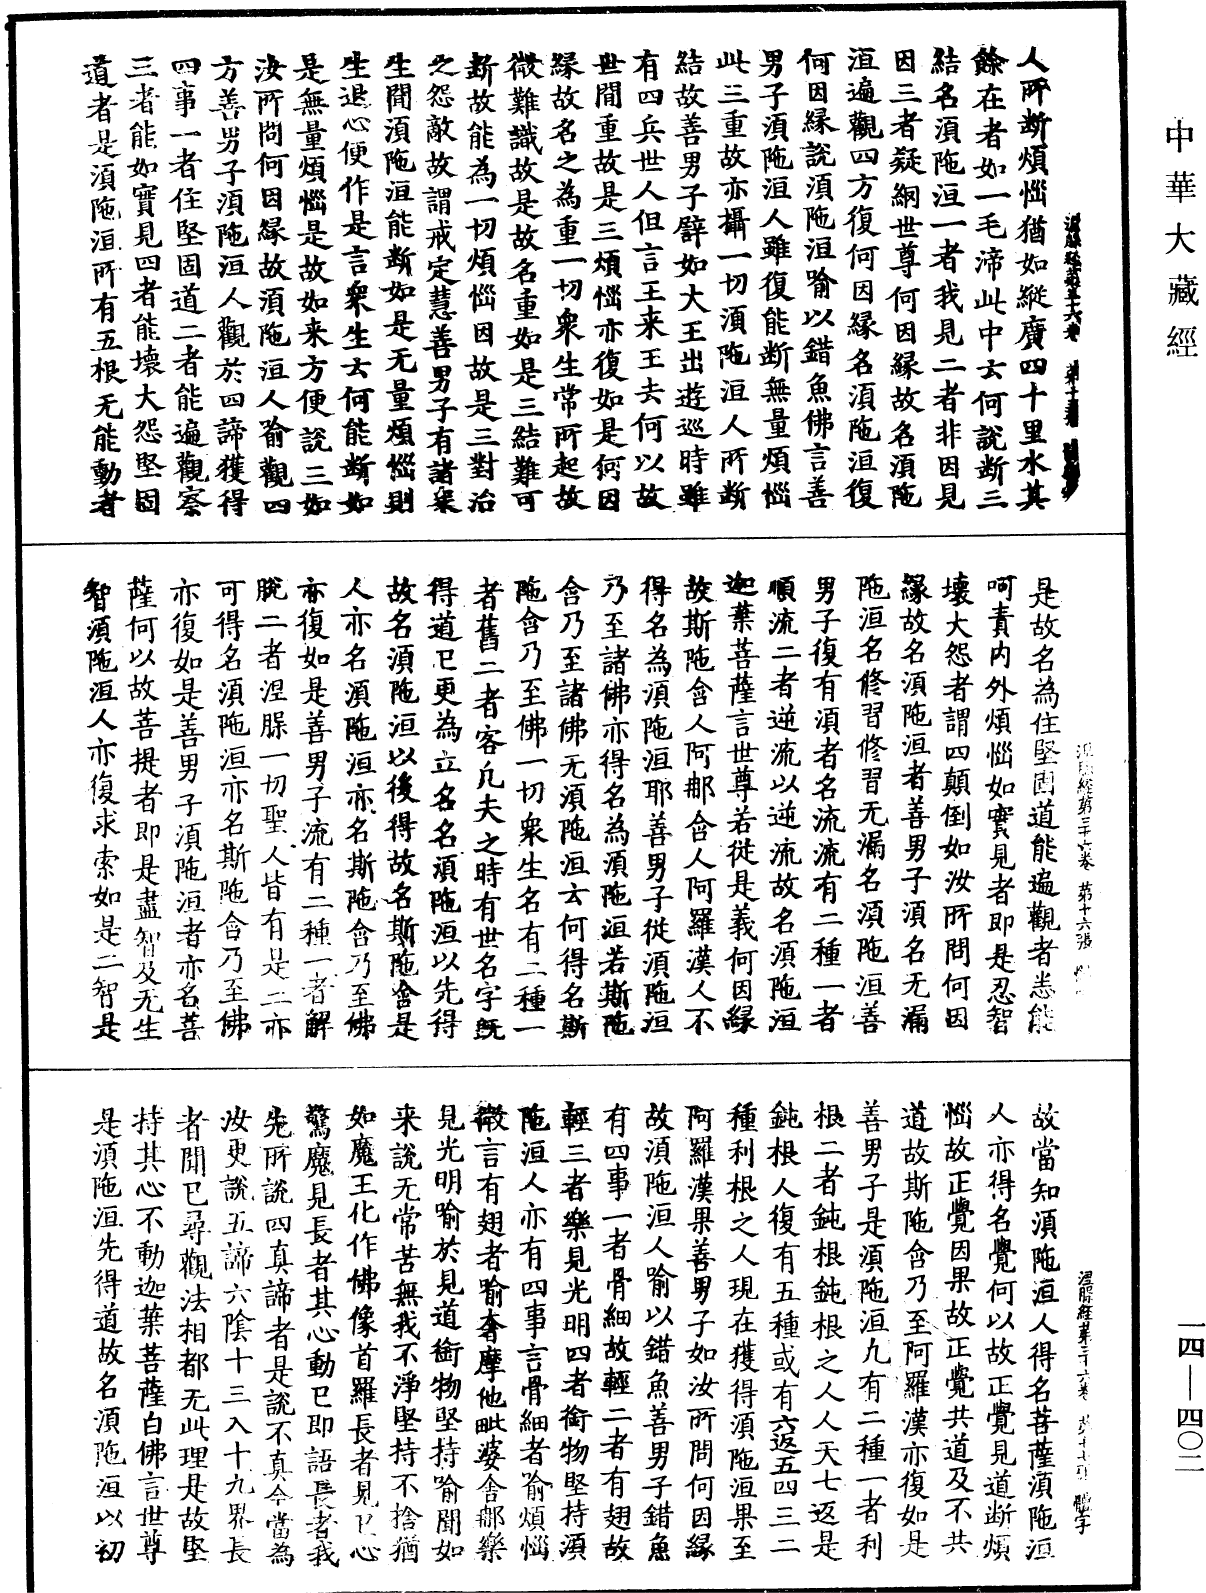 中華大藏經
人所断煩惱猶如縱廣四十里水其
餘在者如一毛渧此中云何說断三
結名須陁洹一者我見二者非因見
因三者疑網世尊何因緣故名須陁
洹遍觀四方復何因緣名須陁洹復
何因緣說須陁洹喻以錯魚佛言善
男子須陁洹人雖復能断無量煩惱
此三重故亦攝一切須陁洹人所断
結故善男子譬如大王出遊巡時雖
有四兵世人但言王来王去何以故
世間重故是三煩惱亦復如是何因
緣故名之為重一切衆生常所起故
微難識故是故名重如是三結難可
断故能為一切煩惱因故是三對治
之怨敵故謂戒定慧善男子有諸衆
生聞須陁洹能断如是无量煩惱則
生退心便作是言衆生云何能断如
是無量煩惱是故如来方便說三如
汝所問何因緣故須陁洹人喻觀四
方善男子須陁洹人觀於四諦獲得
四事一者住堅固道二者能遍觀察
三者能如實見四者能壞大怨堅固
道者是須陁洹所有五根无能動者
是故名為住堅固道能遍觀者悉能
呵責内外煩惱如實見者即是忍智
壞大怨者謂四顛倒如汝所問何因
緣故名須陁洹者善男子須名无漏
陁洹名修習修習无漏名須陁洹善
男子復有須者名流流有二種一者
順流二者逆流以逆流故名須陁洹
迦葉菩薩言世尊若從是義何因緣
故斯陁含人阿那含人阿羅漢人不
得名為須陁洹耶善男子從須陁洹
乃至諸佛亦得名為須陁洹若斯陁
含乃至諸佛无須陁洹云何得名斯
陁含乃至佛一切衆生名有二種一
者舊二者客凡夫之時有世名字旣
得道已更為立名名須陁洹以先得
故名須陁洹以後得故名斯陁含是
人亦名須陁洹亦名斯陁含乃至佛
亦復如是善男子流有二種一者解
脫二者涅槃一切聖人皆有是二亦
可得名須陁洹亦名斯陁含乃至佛
亦復如是善男子須陁洹者亦名菩
薩何以故菩提者即是盡智及无生
智須陁洹人亦復求索如是二智是
涅槃經第三十六卷 第十六張
故當知須陁洹人得名菩薩須陁洹
人亦得名覺何以故正覺見道断煩
惱故正覺因果故正覺共道及不共
道故斯陁含乃至阿羅漢亦復如是
善男子是須陁洹凡有二種一者利
根二者鈍根鈍根之人人天七返是
鈍根人復有五種或有六返五四三二
種利根之人現在獲得須陁洹果至
阿羅漢果善男子如汝所問何因緣
故須陁洹人喻以錯魚善男子錯魚
有四事一者骨細故輕二者有翅故
輕三者樂見光明四者銜物堅持須
陁洹人亦有四事言骨細者喻煩惱
微言有翅者喻奢摩他毗婆舍那樂
見光明喻於見道銜物堅持喻聞如
来說无常苦無我不淨堅持不捨猶
如魔王化作佛像首羅長者見已心
驚魔見長者其心動已即語長者我
先所說四真諦者是說不真今當為
汝更說五諦六陰十三入十九界長
者聞已尋觀法相都无此理是故堅
持其心不動迦葉菩薩白佛言世尊
是須陁洹先得道故名須陁洹以初
涅槃經第三十六卷 第十七張 體字
一四—四〇二